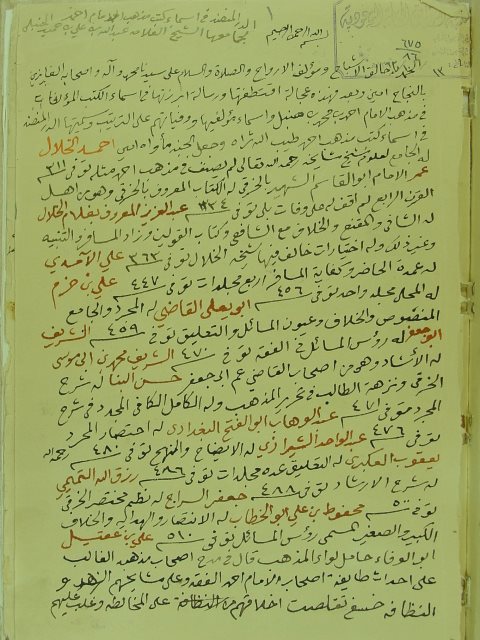 الدر المنضد في اسماء كتب مذهب الامام احمد
بسم الله الرحمن الرحيم
٦٧٥
٨٦
الحمد لله خالق الاشباح ورزق الارواح والصلاة والسلام على سيدنا محمد وآله واصحابه الفايزين
بالنجاح امين وبعد فهذه عجالة اقتطفتها ورسالة ابرزتها في اسماء الكتب المؤلفات
في مذهب الامام احمد بن محمد بن حنبل واسماء مؤلفيها ووفياتهم على الترتيب وسميتها الدر المنضد
في اسماء كتب مذهب احمد طيب الله ثراه وجعل الجنة مأواه امين احمد الخلال
له الجامع لعلوم شيخ مشايخه رحمه الله تعالى لم يصنف في مذهب احمد مثله توفي ٣١١
عمر الامام ابو القاسم الشهير بالخرقي له الكتاب المعروف بالخرقي وهو من اهل
القرن الرابع لم اقف له على وفات بلى توفي ٣٣٤ عبد العزيز المعروف بغلام الخلال
له الشافي والمقنع والخلاف مع الشافعي وكتاب القولين وزاد المسافر والتنبيه
وغير ذلك وله اختيارات خالف فيها شيخه الخلال توفي ٣٦٣ علي الآمدي
له عمدة الحاضر وكفاية المسافر اربع مجلدات توفي ٤٤٧ علي بن حزم
له المحلى مجلد واحد توفي ٤٥٦ ابو يعلى القاضي له المجرد والجامع
المنصوص والخلاف وعيون المسائل والتعليق توفي ٤٥٩ الشريف
ابو جعفر له رؤس المسائل في الفقه توفي ٤٧٠ الشريف محمد بن ابي موسى
له الارشاد وهو من اصحاب القاضي عم ابي جعفر حسن البنا له شرح
الخرقي ونزهة الطالب في تجريد المذهب وله الكامل الكافي المحدد في شرح
المجرد توفي ٤٧١ عبد الوهاب ابو الفتح البغدادي له اختصار المجرد
توفي ٤٧٦ عبد الواحد الشيرازي له الايضاح والمنهج توفي ٤٨٠ رحمه الله
يعقوب العكبري له التعليق عده مجلدات توفي ٤٨٦ رزق الله التميمي
له شرح الارشاد توفي ٤٨٨ جعفر السراج له نظم مختصر الخرقي
توفي ٥٠٠ محفوظ بن علي ابو الخطاب له الانتصار والهداية والخلاف
الكبير والصغير المسمى رؤس المسائل توفي ٥١٠ علي بن عقيل
ابو الوفاء حامل لواء المذهب قال في مدح اصحاب مذهبه الغالب
على احداث طايفة اصحاب الامام احمد الفقه وعلى مشايخهم الزهد و
النظافه خشن تقلصت اخلاقهم عن المخالطه وغلب عليهم